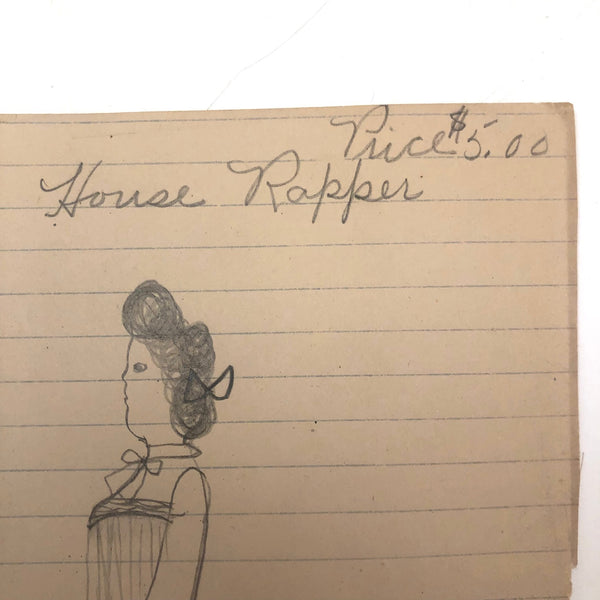 Price $5.00
House Rapper